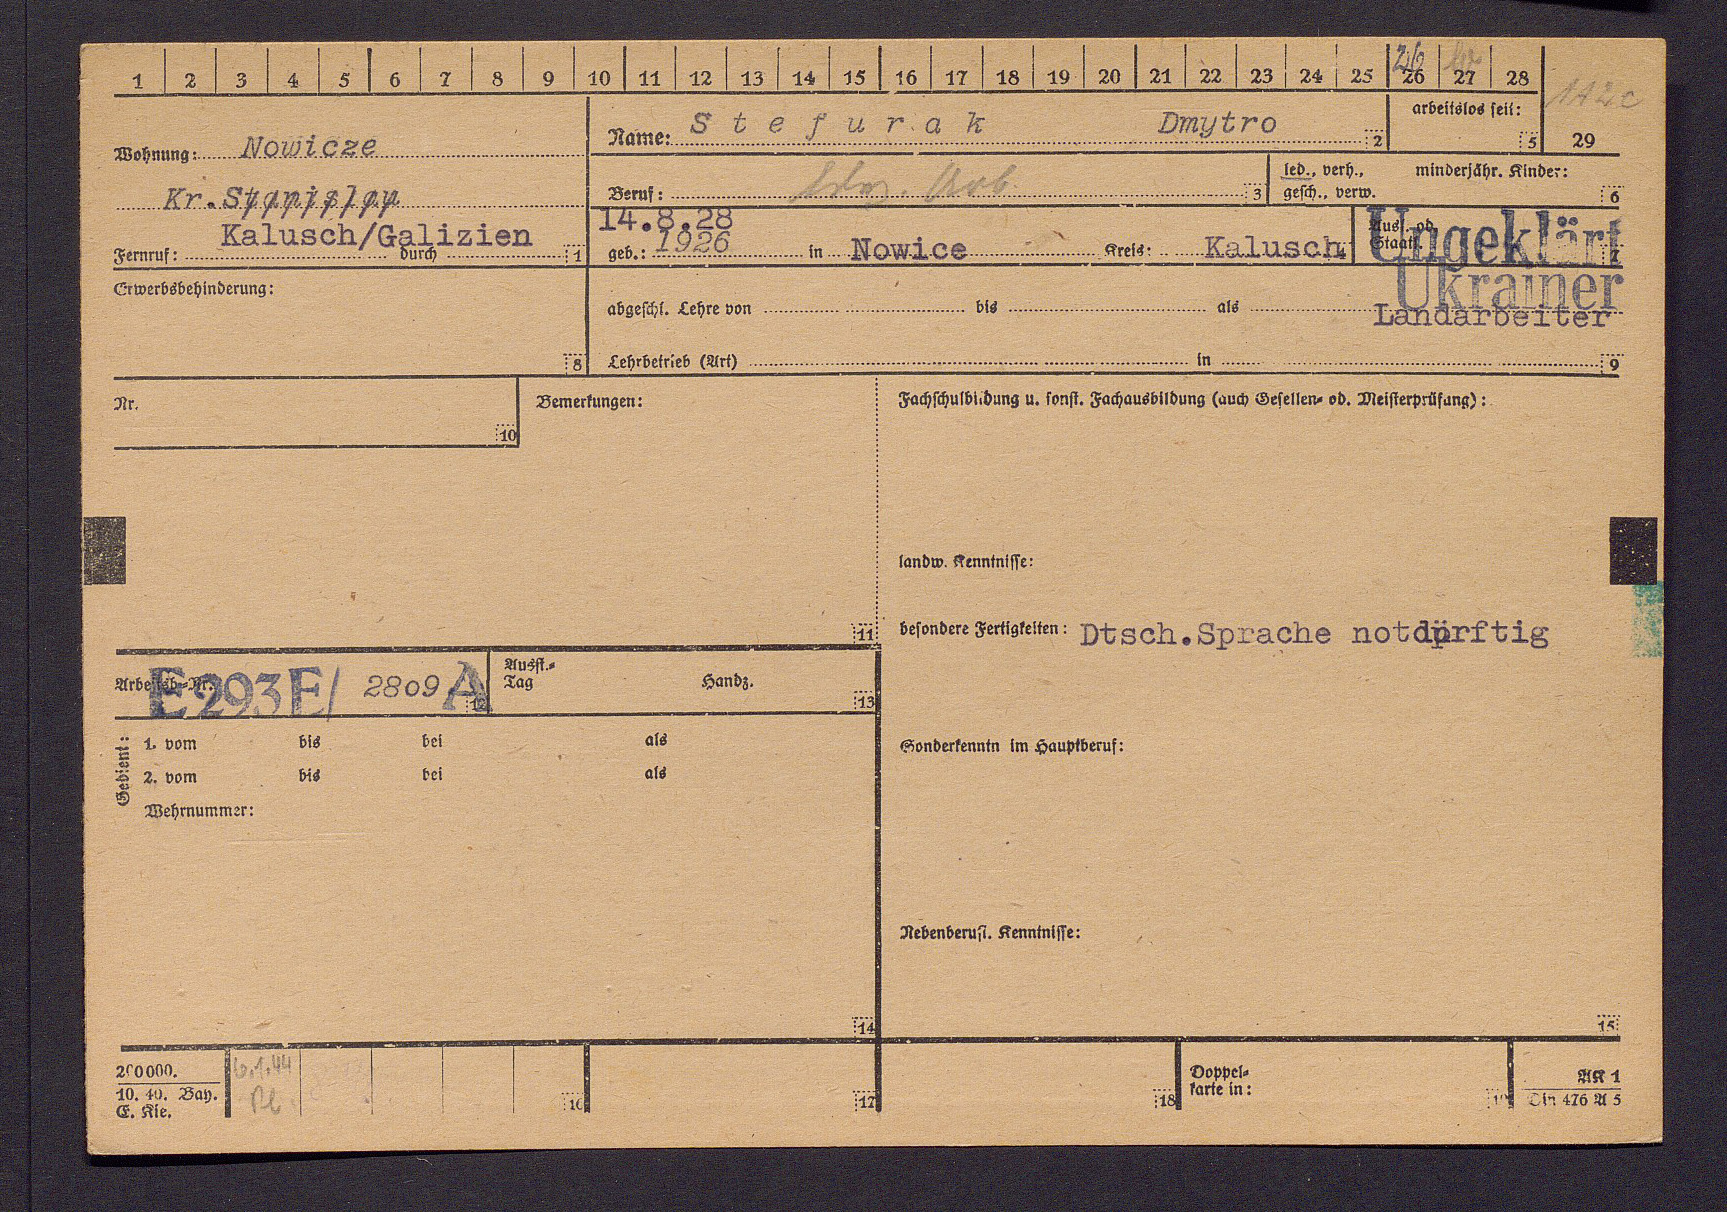 1 2 3 4 5 6 7 8 9 10 11 12 13 14 15 16 17 18 19 20 21 22 23 24 25 26 27 28
112c
29
Wohnung: Nowicze
Kr. Stanislau
Kalusch/Galizien
Fernruf: durch 1
Name: Stefurak Dmytro 2
arbeitslos seit: 5
Beruf: Arb. 3
led., verh., gesch., verw.
minderjähr. Kinder: 6
14.8.28
geb.: 1926 in Nowice Kreis: Kalusch 4
Ausl. od. Staatl. 7
Ungeklärt
Ukrainer
Erwerbsbehinderung:
8
abgeschl. Lehre von bis als Landarbeiter
Lehrbetrieb (Art) in 9
Nr.
10
Bemerkungen:
11
Fachschulbildung u. sonst. Fachausbildung (auch Gesellen- od. Meisterprüfung):
landw. Kenntnisse:
besondere Fertigkeiten: Dtsch.Sprache notdürftig
Arbeitsb.-Nr. E 293 E/ 2809 A 12
Ausst.-Tag Handz. 13
Gedient:
1. vom bis bei als
2. vom bis bei als
Wehrnummer:
14
Sonderkenntn im Hauptberuf:
Nebenberufl. Kenntnisse:
15
200000.
10. 40. Bay.
E. Kie.
6.1.44
16
17
18
Doppelkarte in:
19
AK 1
Din 476 A 5